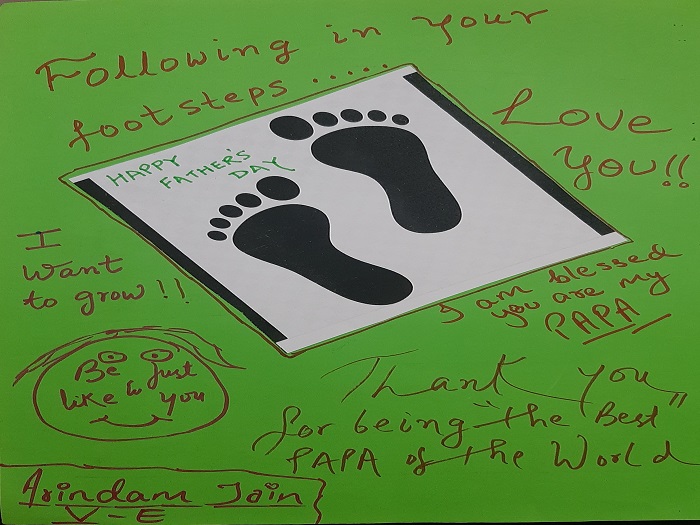 Following in your
footsteps .....
Love
You!!
HAPPY
FATHER'S
DAY
I
want
to grow!!
I am blessed
you are my
PAPA
Be Just
like to you
Thank You
for being "the Best"
PAPA of the World
Arindam Jain
V-E